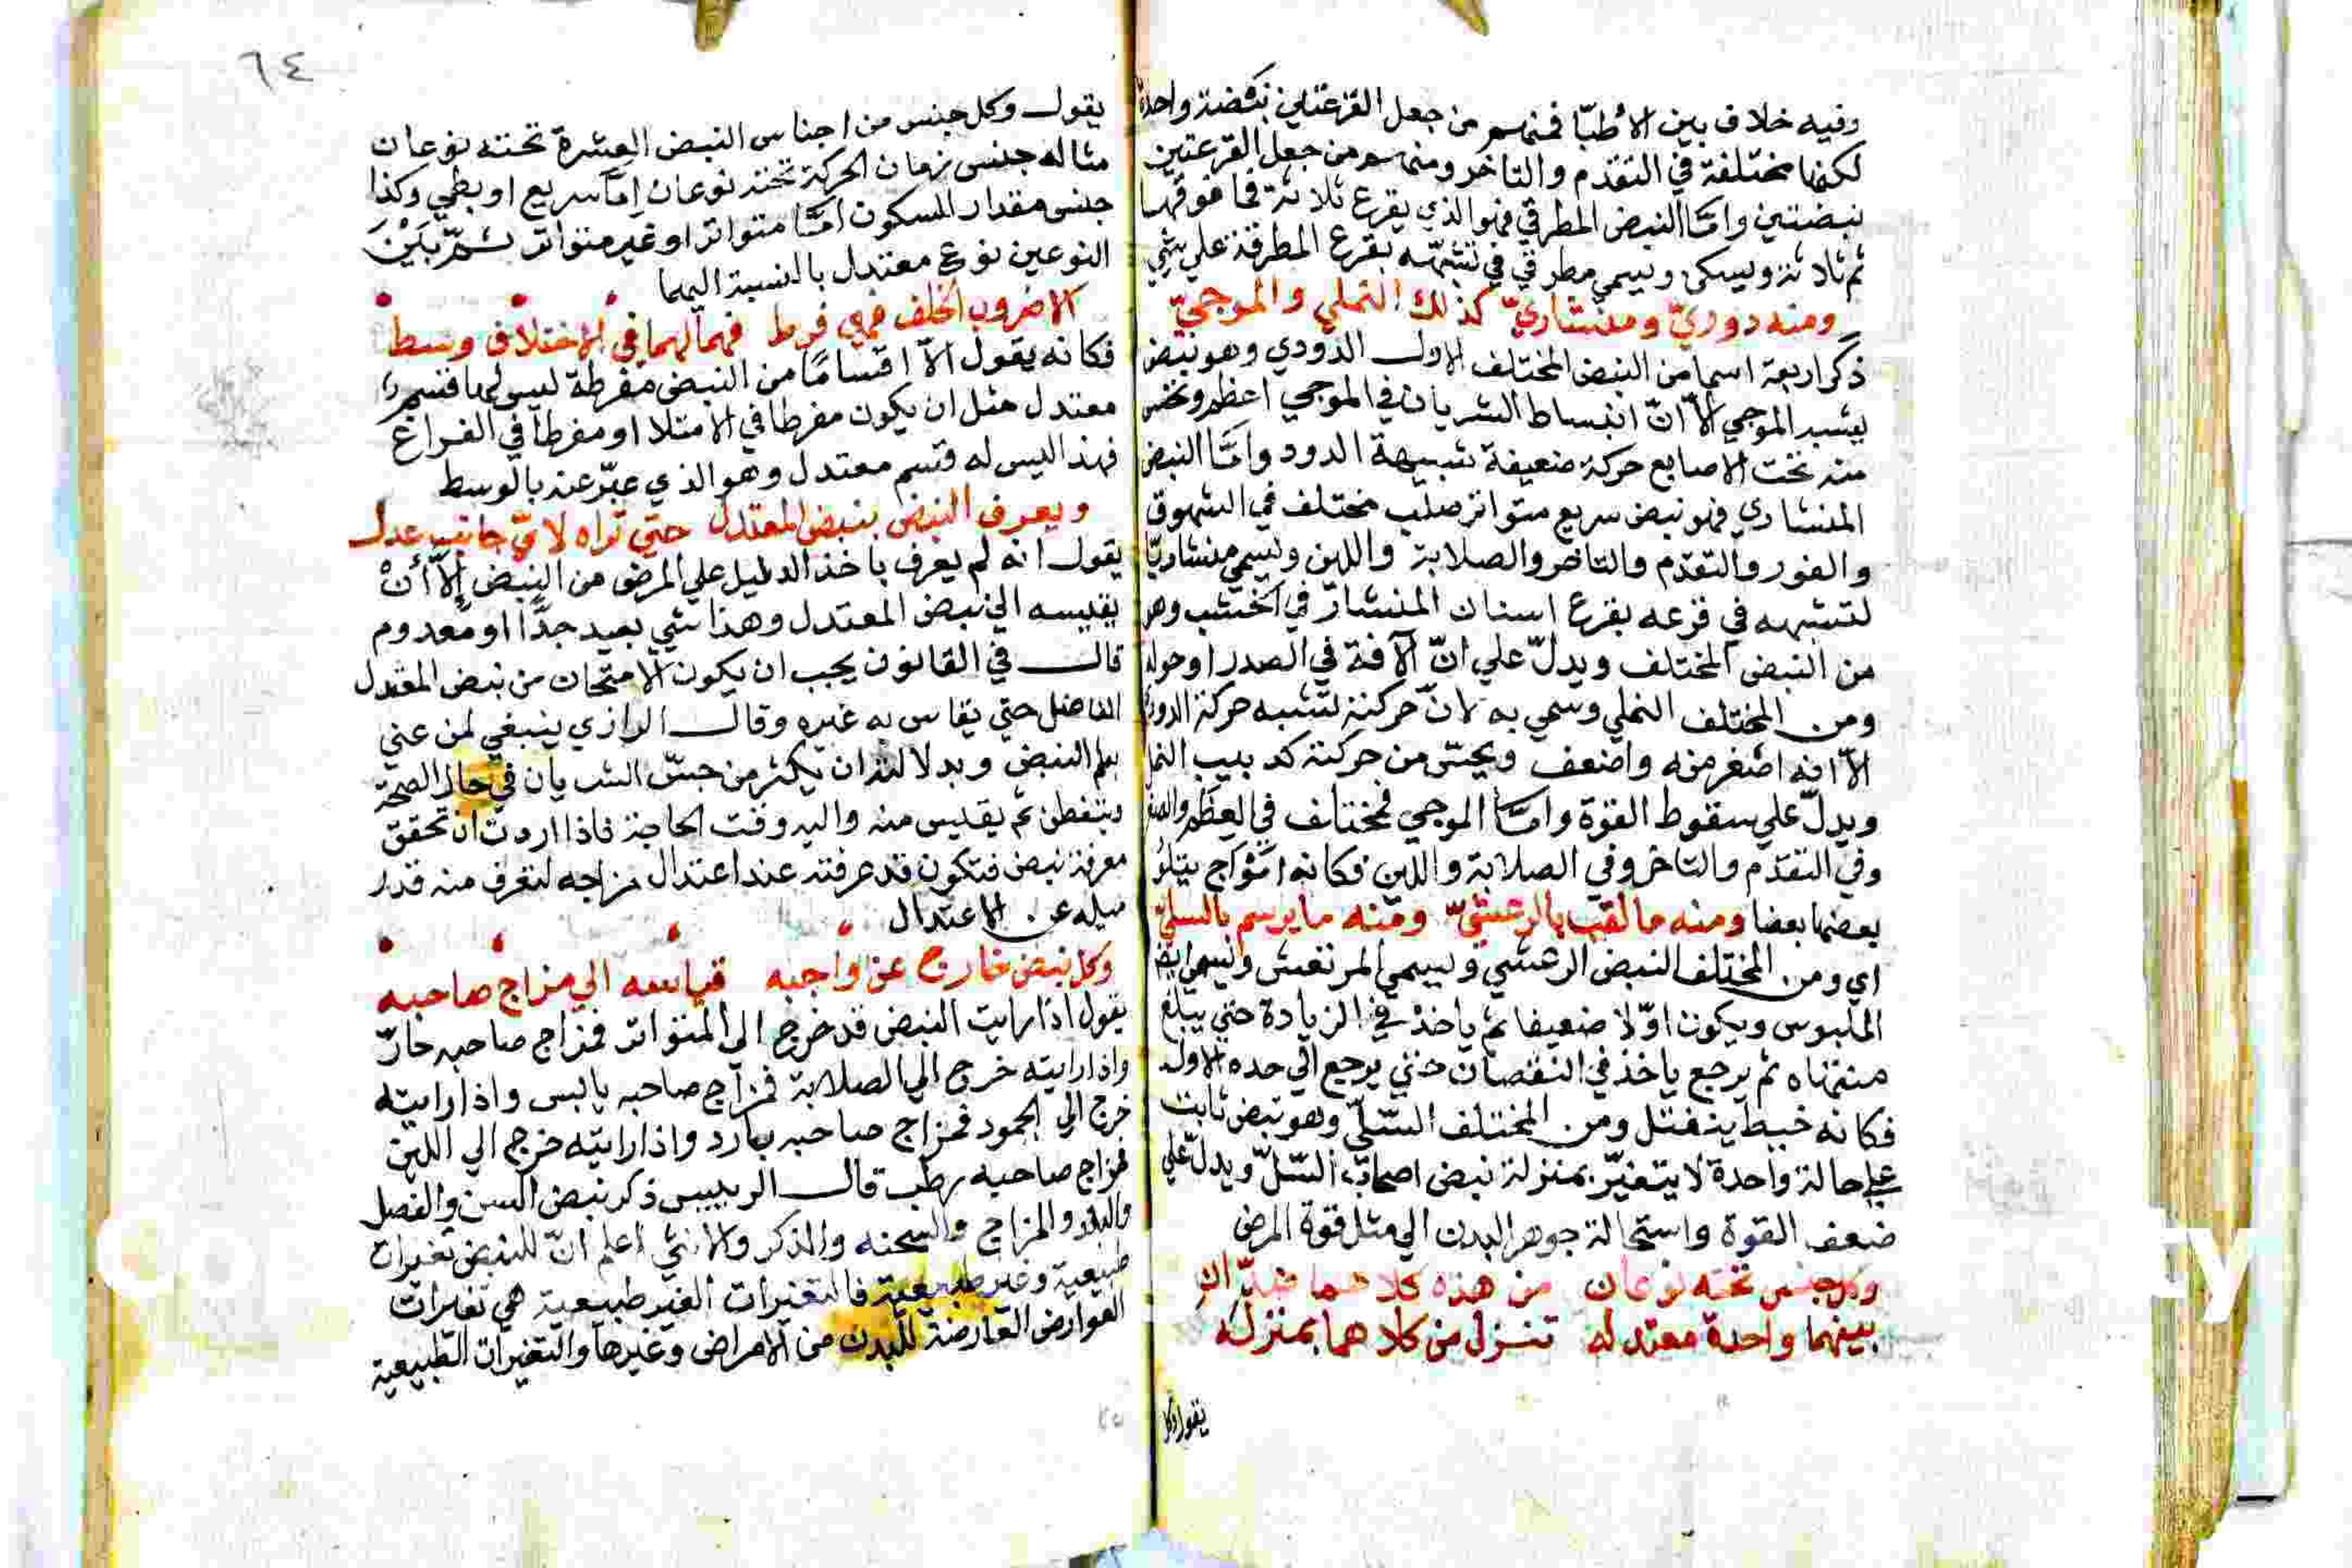 وفيه خلاف بين الأطبّا فمنهم من جعل القرعتين نبضة واحدة
لكنها مختلفة في التقدم والتاخر ومنهم من جعل القرعتين
نبضتين وامّا النبض المطرقي فهو الذي يقرع ثلاثة فما فوقها
ثم ثلاثة ويسكن ويسمي مطرقي في تشبّهه بقرع المطرقة علي شي
ومنه دوديّ ومنشاريّ كذلك النملي والموجيّ
ذكر اربعة اسما من النبض المختلف الاول الدودي وهو نبض
يشبه الموجي الاّ انّ انبساط الشريان في الموجي اعظم وتحس
منه تحت الاصابع حركة ضعيفة شبيهة الدود وامّا النبض
المنشاري فهو نبض سريع متواتر صلب مختلف في الشهوق
والغور والتقدّم والتاخر والصلابة واللين ويسمي منشاريّا
لتشبهه في قرعه بقرع اسنان المنشار في الخشب وهو
من النبض المختلف ويدلّ علي انّ الآفة في الصدر او حوله
ومن المختلف النملي وسمي به لانّ حركته تشبه حركة الدود
الاّ انه اصغر منه واضعف ويحسّ من حركته كدبيب النمل
ويدلّ علي سقوط القوّة وامّا الموجي فمختلف في العظم والصغر
وفي التقدّم والتاخر وفي الصلابة واللين فكانه امْوَاج يتلوُ
بعضها بعضا ومنه ما لقب بالرعشيّ ومنه ما يرسم بالسليّ
اي ومن المختلف النبض الرعشي ويسمي المرتعش ويسمي ايضا
الملبوس ويكون اوّلا ضعيفا ثم ياخذ في الزيادة حتي يبلغ
منتهاه ثم يرجع ياخذ في النقصان حتي يرجع الي حده الاول
فكانه خيط ينفتل ومن المختلف السّليّ وهو نبض ثابت
علي حالة واحدة لا يتغيّر بمنزلة نبض اصحاب السّلّ ويدلّ علي
ضعف القوة واستحالة جوهر البدن الي مثل قوة المرض
وكل جنس تحته نوعان من هذه كلاهما ضدّان
بينهما واحدة معتدله تنزل من كلاهما بمنزله
يقول وكل
٦٤
يقول وكل جنس من اجناس النبض العشرة تحته نوعان
مثاله جنس زمان الحركة تحته نوعان إمّا سريع او بطي وكذا
جنس مقدار السكون امّا متواتر او غير متواتر ثمّ بَيْنَ
النوعين نوع معتدل بالنسبة اليهما
الا ضروب الخلف فهي فرط فما لهما في الاختلاف وسط
فكانه يقول الاّ اقسامًا من النبض مفرطة ليس لها قسم
معتدل مثل ان يكون مفرطا في الامتلا او مفرطا في الفراغ
فهذا ليس له قسم معتدل وهو الذي عبّر عنه بالوسط
ويعرف النبض بنبض المعتدل حتي تراه لايّ جانب عدل
يقول انه لم يعرف باخذ الدليل علي المرض من النبض إلاّ أنْ
يقيسه الي نبض المعتدل وهذا شي بعيد جدًّا او معدوم
قال في القانون يجب ان يكون الامتحان من نبض المعتدل
الفاضل حتي يقاس به غيره وقال الرازي ينبغي لمن عني
بعلم النبض وبدلالته ان يكثر من جسّ الشريان في حال الصحة
ويتفطن ثم يقيس منه واليه وقت الحاجة فاذا اردت ان تحقق
معرفة نبض فتكون قد عرفته عند اعتدال مزاجه لتعرف منه قدر
ميله عن الاعتدال
وكل نبض خارج عن واجبه قياسه الي مزاج صاحبه
يقول اذا رايت النبض قد خرج الي المتواتر فمزاج صاحبه حارّ
واذا رايته خرج الي الصلابة فمزاج صاحبه يابس واذا رايته
خرج الي الجمود فمزاج صاحبه بارد واذا رايته خرج الي اللين
فمزاج صاحبه رطب قال الرييس ذكر نبض السن والفصل
والبلد والمزاج والسحنه والذكر والانثي اعلم انّ للنبض تغيرات
طبيعية وغير طبيعية فالتغيرات الغير طبيعية هي تغيرات
العوارض العارضة للبدن من الامراض وغيرها والتغيرات الطبيعية